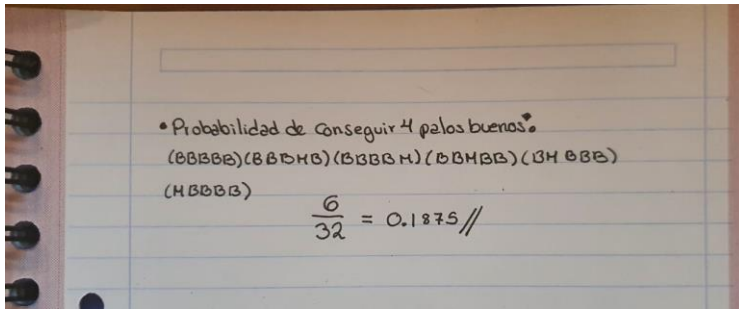 •Probabilidad de conseguir 4 palos buenos•
(BBBBB)(BBBMB)(BBBBM)(BBMBB)(BMBBB)
(MBBBB)
6
32
= 0.1875//